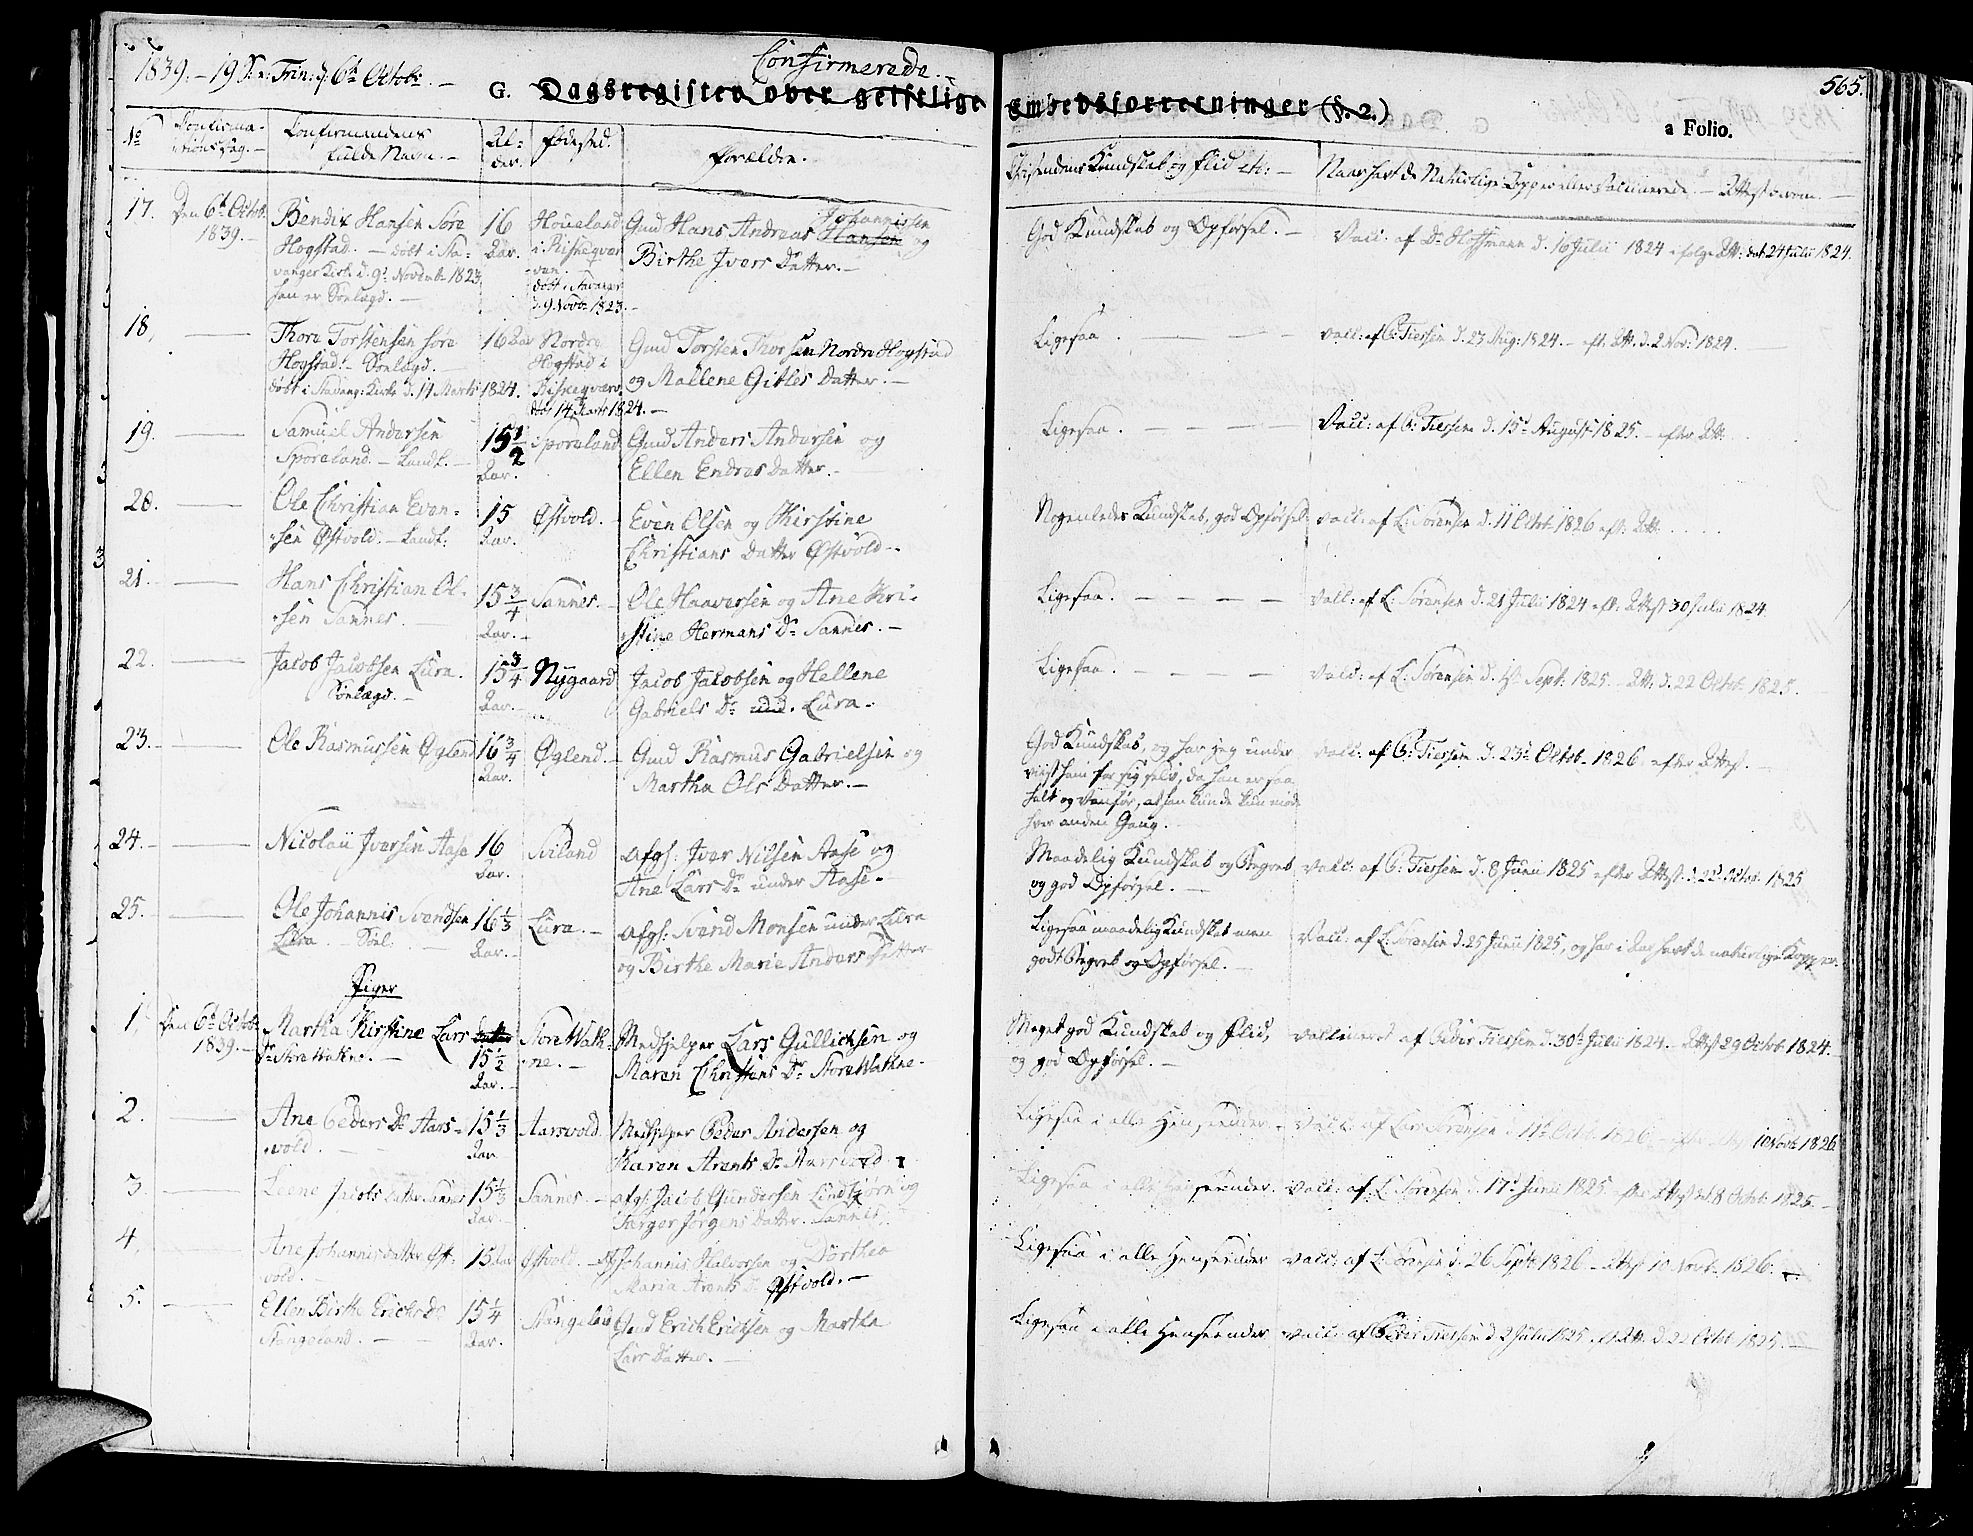 1839. – 19 S. e: Trin: d. 6te Octobr. –
Confirmerede. –
565.
G. Dagsregister over geistlige Embedsforretninger (§. 2.)
a Folio.
No
Confirma-
tions Dag. –
Confirmandens
fulde Navn. –
Al-
der.
Fødested.
Forældre.
Kundskab og Flid etc: –
Naar havt de Naturlige Kopper eller Vaccinerede. – Attest derom. –
17. Den 6te Octob.
1839. –
Bendix Hansen Søre
Hogstad. – døbt i Sta-
vanger Kirke d. 9de Novbr 1823
han er Sønlægd. –
16
Aar.
Houeland
i Riskeqvær
døbt i Stavanger
d. 9 Novbr 1823. –
Gmd Hans Andreas Hansen Johannissen og
Birthe Ivers Datter. –
God Kundskab og Opførsel. –
Vacc: af Dr Hoffmann d. 16 Julii 1824 ifølge Att: dat. 24 Julii 1824.
18. –
Thore Torstensen søre
Hogstad. – Sønlægd. –
døbt i Stavang: Kirke d. 14 Marts 1824.
16 Aar
Nordre
Hogstad i
Riskeqvær
døbt 14 Marts 1824. –
Gmd Torsten Thorsen Nordre Hogstad
og Mallene Gitles Datter. –
Ligesaa. – – –
Vacc: af P: Tiessen d. 27 Aug: 1824. – eft. Att. d. 2 Nov: 1824.
19. –
Samuel Andersen
Sporaland. – Landt. –
15 1/2
Aar.
Sporaland
Gmd Anders Andersen og
Ellen Endres Datter. –
Ligesaa. – – – –
Vacc: af P: Tiessen d. 15de August 1825. – efter Att.
20. –
Ole Christian Even-
sen Østvold. – Landt:
15
Aar.
Østvold. –
Even Olsen og Kirstine
Christians Datter Østvold. –
Nogenledes Kundskab, god Opførsel
Vacc: af L: Sørensen d. 11 Octob. 1826 eft. Att.
21. –
Hans Christian Ol-
sen Sannes. –
15 3/4
Aar. –
Sannes. –
Ole Haaversen og Ane Kri-
stine Hermans Dr Sannes. –
Ligesaa. – – – –
Vacc: af L: Sørensen d. 21 Julii 1824 eft: Attest 30 Julii 1824
22. –
Jacob Jacobsen Lura.
Sønlægd. –
15 3/4
Aar. –
Nygaard
Jacob Jacobsen og Hellene
Gabriels Dr und. Lura. –
Ligesaa. – – – –
Vacc: af L: Sørensen d. Sept: 1825. – Att. d. 22 Octob. 1825.
23. –
Ole Rasmussen Øglend
16 3/4
Aar.
Øglend. –
Gmd Rasmus Gabrielsen og
Martha Ols Datter. –
God Kundskab, og har jeg under
viist ham for sig selv, da han er saa
halt og vanfør, at han kunde kun møde
hver anden Gang.
Vacc: af P: Tiessen d. 23de Octob. 1826 efter Attest. –
24. –
Nicolaii Iversen Aase
16
Aar.
Sviland
Afg: Iver Nilsen Aase og
Ane Lars Dr under Aase. –
Maadelig Kundskab og Begreb
og god Opførsel. –
Vacc: af P: Tiessen d. 8 Junii 1825 efter Attest d. 22de Octob. 1825
25. –
Ole Johannis Svendsen
Lura. – Sønl: –
16 1/3
Aar. –
Lura. –
Afg: Svend Monsen under Lura
og Birthe Marie Anders Datter
Ligesaa maadelig Kundskab men
godt Begreb og Opførsel. –
Vacc: af L: Sørensen d. 25 Junii 1825, og har i Aar havt de naturlige Kopper.
Piger
1. Den 6te Octob.
1839. –
Martha Kirstine Lars
Dr Store Watne. –
15 1/2
Aar. –
Store Wath-
ne. –
Medhjelper Lars Gullichsen og
Maren Christens Dr Store Wathne. –
Meget god Kundskab og Flid,
og god Opførsel. –
Vaccineret af Peder Tiessen d. 30te Julii 1824. – Attest 29 Octob. 1824. –
2. –
Ane Peders Dr Aars-
vold. –
15 1/3
Aar
Aarsvold
Medhjelper Peder Andersen og
Karen Arents Dr Aarsvold.
Ligesaa i alle Henseender. –
Vacc: af Lars Sørensen d. 11te Octob. 1826 – efter Attest 10 Novb. 1826
3. –
Leene Jacobs Datter Sannes
15 1/3
Aar. –
Sannes. –
Afg: Jacob Gundersen Lindbjørn og
Sarger Jørgens Datter Sannes.
Ligesaa i alle Henseender.
Vacc: af L: Sørensen d. 17de Junii 1825 efter Attest d. 8 Octob. 1825. –
4. –
Ane Johannis datter Øst-
vold. –
15 Aar
Østvold. –
Johannis Halvorsen og Dorthea
Maria Arents Dr Østvold. –
Ligesaa i alle Henseender
Vacc: af L: Sørensen d. 26 Septb. 1826 – Attest 10 Novb. 1826. –
5. –
Ellen Birthe Erichs Dr
Stangeland. –
15 1/4
Aar.
Stangeland
Gmd Erich Erichsen og Martha
Lars Datter. –
Ligesaa i alle Henseender
Vacc: af Peder Tiessen d. 2 Julii 1825. – eft. Att. d. 22 Octob. 1825. –